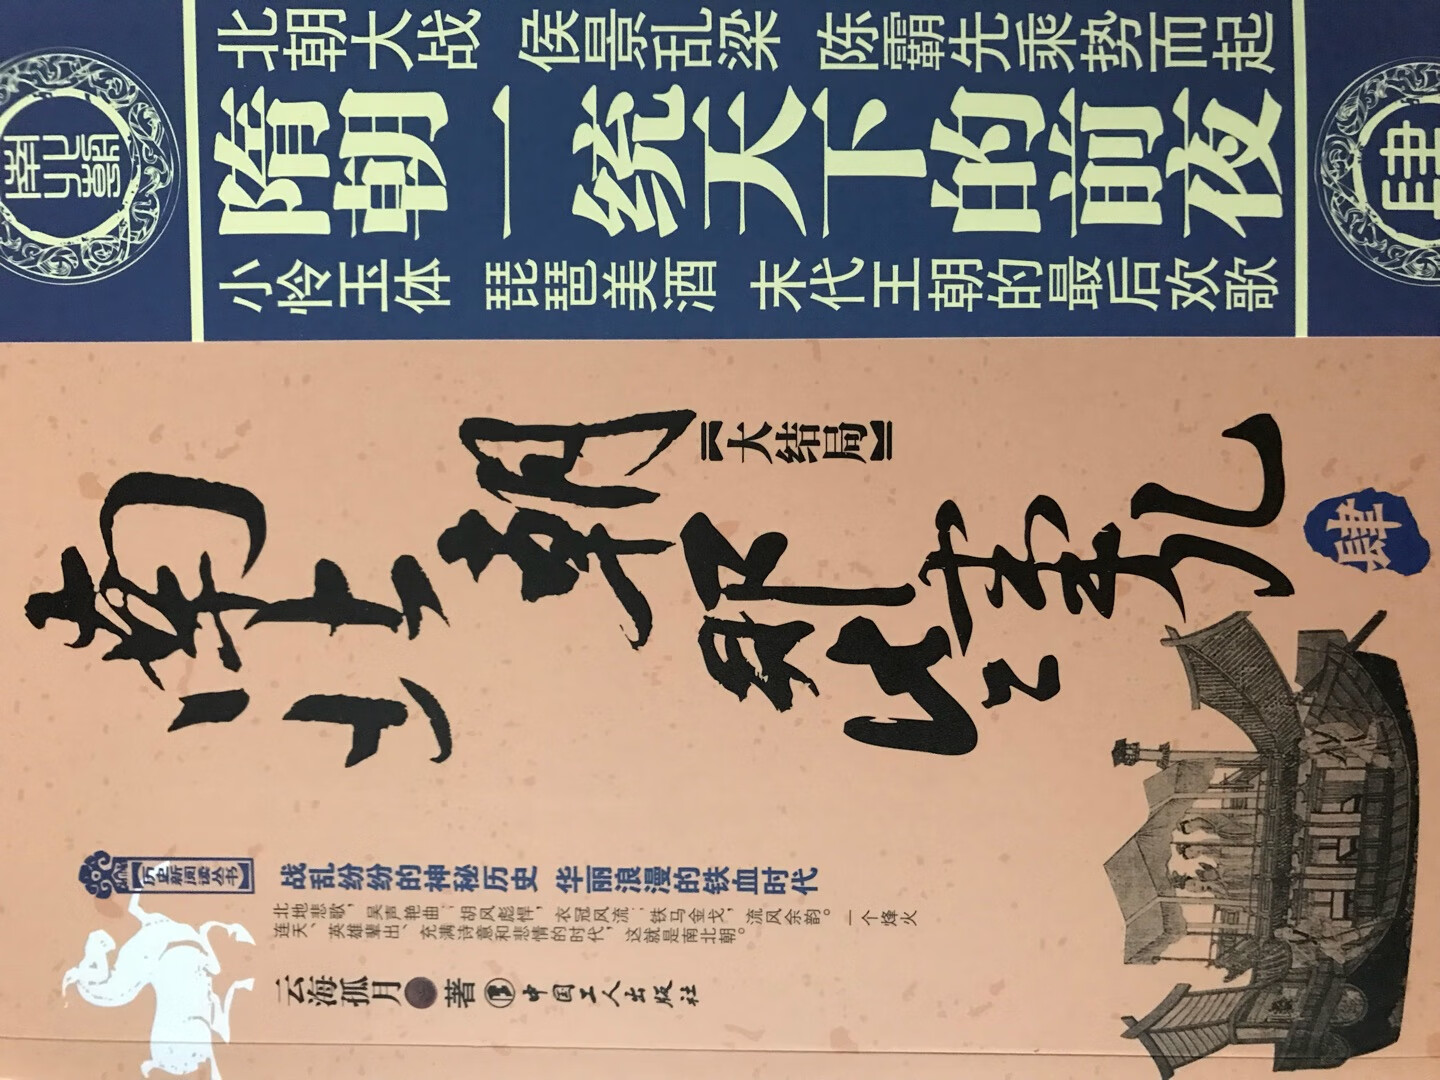 南北朝
北朝大战 侯景乱梁 陈霸先乘势而起
隋朝一统天下的前夜
小怜玉体 琵琶美酒 末代王朝的最后欢歌
肆
南北朝那些事儿
【大结局】
肆
历史新阅读丛书
战乱纷纷的神秘历史 华丽浪漫的铁血时代
北地悲歌，吴声艳曲；胡风彪悍，衣冠风流；铁马金戈，流风余韵。一个烽火
连天、英雄辈出、充满诗意和悲情的时代，这就是南北朝。
云海孤月 著
中国工人出版社